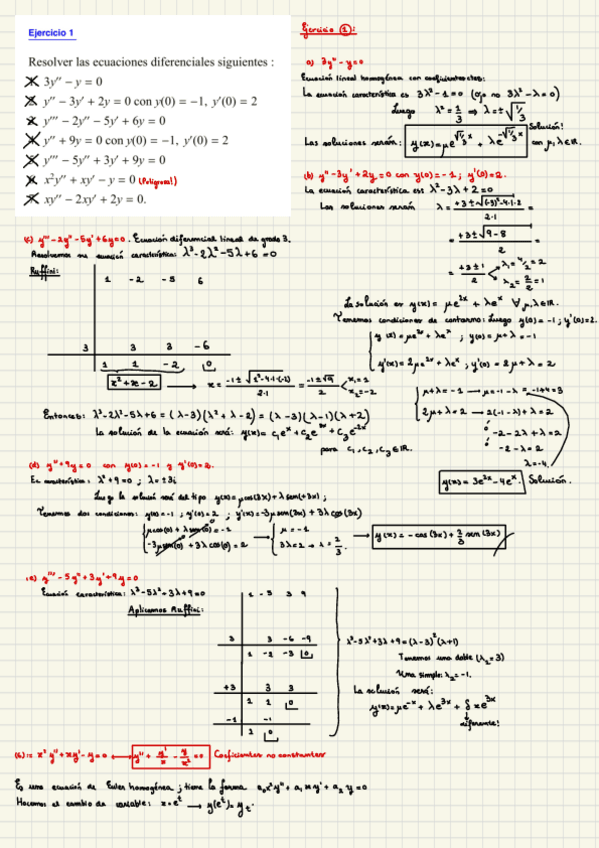 Ejercicio 1
Resolver las ecuaciones diferenciales siguientes :
3y'' − y = 0
y'' − 3y' + 2y = 0 con y(0) = −1, y'(0) = 2
y''' − 2y'' − 5y' + 6y = 0
y'' + 9y = 0 con y(0) = −1, y'(0) = 2
y''' − 5y'' + 3y' + 9y = 0
x²y'' + xy' − y = 0 (Peligrosa!)
xy'' − 2xy' + 2y = 0.
Ejercicio 1:
a) 3y'' - y = 0
Ecuación lineal homogénea con coeficientes ctes:
La ecuación característica es 3λ² - 1 = 0 (ojo no 3λ² - λ = 0)
Luego λ² = 1/3 ⇒ λ = ±√1/3
Solución!
Las soluciones serán: y(x) = μe^(√1/3 x) + λe^(-√1/3 x) con μ, λ ∈ ℝ.
(b) y'' - 3y' + 2y = 0 con y(0) = -1; y'(0) = 2.
La ecuación característica es: λ² - 3λ + 2 = 0
Las soluciones serán λ = +3 ± √(-3)² - 4·1·2 / 2·1
= +3 ± √9 - 8 / 2 =
= +3 ± 1 / 2 λ₁ = 4/2 = 2
λ₂ = 2/2 = 1
La solución es y(x) = μe^2x + λe^x ∀ μ, λ ∈ ℝ.
Tenemos condiciones de contorno: Luego y(0) = -1; y'(0) = 2.
y(x) = μe^2x + λe^x ; y(0) = μ + λ = -1
y'(x) = 2μe^2x + λe^x ; y'(0) = 2μ + λ = 2
μ + λ = -1 → μ = -1 - λ = -1 + 4 = 3
2μ + λ = 2 → 2(-1 - λ) + λ = 2
-2 - 2λ + λ = 2
-2 - λ = 2
λ = -4.
y(x) = 3e^2x - 4e^x. Solución.
(c) y''' - 2y'' - 5y' + 6y = 0. Ecuación diferencial lineal de grado 3.
Resolvemos su ecuación característica: λ³ - 2λ² - 5λ + 6 = 0
Ruffini:
1 -2 -5 6
3 3 3 -6
1 1 -2 0
x² + x - 2 → x = -1 ± √1² - 4·1·(-2) / 2·1 = -1 ± √9 / 2 x₁ = 1
x₂ = -2
Entonces: λ³ - 2λ² - 5λ + 6 = (λ - 3)(λ² + λ - 2) = (λ - 3)(λ - 1)(λ + 2)
La solución de la ecuación será: y(x) = c₁e^x + c₂e^3x + c₃e^-2x
para c₁, c₂, c₃ ∈ ℝ.
(d) y'' + 9y = 0 con y(0) = -1 y y'(0) = 2.
Ec característica: λ² + 9 = 0 ; λ = ±3i
Luego la solución será del tipo y(x) = μcos(3x) + λsen(3x) ;
Tenemos dos condiciones: y(0) = -1 ; y'(0) = 2 ; y'(x) = -3μsen(3x) + 3λcos(3x)
μcos(0) + λsen(0) = -1 → μ = -1
-3μsen(0) + 3λcos(0) = 2 3λ = 2 → λ = 2/3.
y(x) = -cos(3x) + 2/3 sen(3x)
(e) y''' - 5y'' + 3y' + 9y = 0
Ecuación característica: λ³ - 5λ² + 3λ + 9 = 0
Aplicamos Ruffini:
1 -5 3 9
3 3 -6 -9
1 -2 -3 0
+3 3 3
1 1 0
-1 -1
1 0
λ³ - 5λ² + 3λ + 9 = (λ - 3)²(λ + 1)
Tenemos una doble (λ₂ = 3)
Una simple: λ₂ = -1.
La solución será:
y(x) = μe^-x + λe^3x + δxe^3x
diferente!
(6):= x²y'' + xy' - y = 0 ⟷ y'' + y'/x - y/x² = 0 Coeficientes no constantes
Es una ecuación de Euler homogénea ; tiene la forma a₀x²y'' + a₁xy' + a₂y = 0
Hacemos el cambio de variable: x = e^t → y(e^t) = y_t.